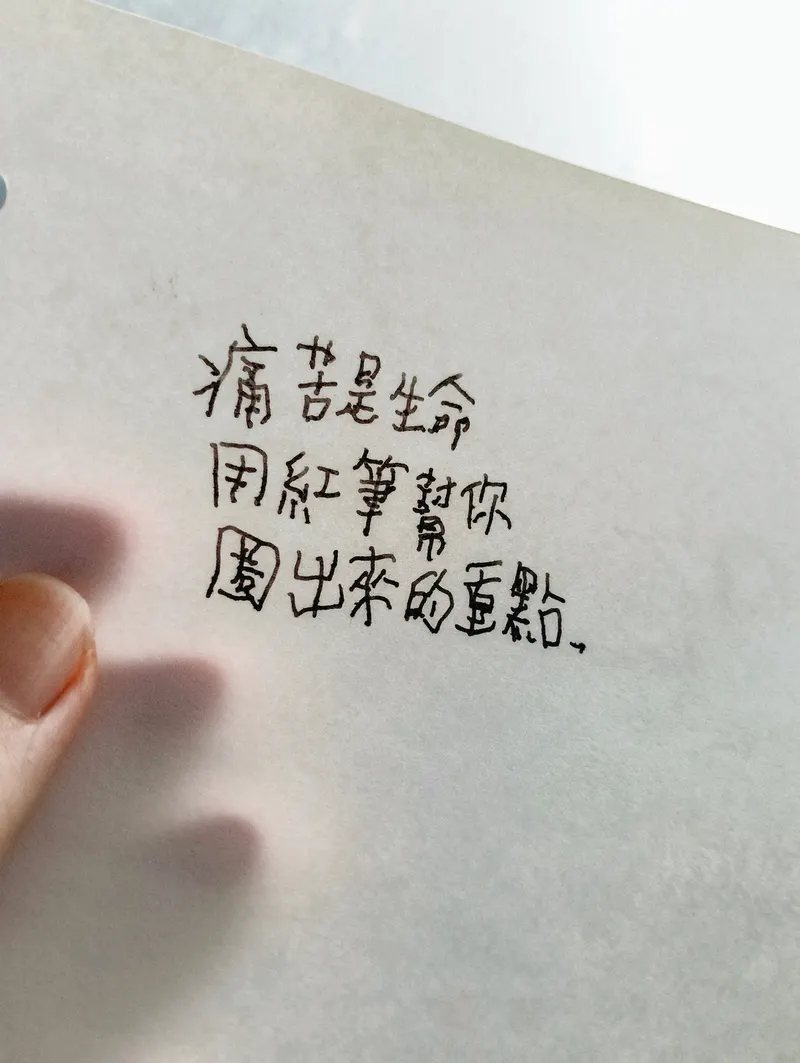 痛苦是生命
用紅筆幫你
圈出來的重點。